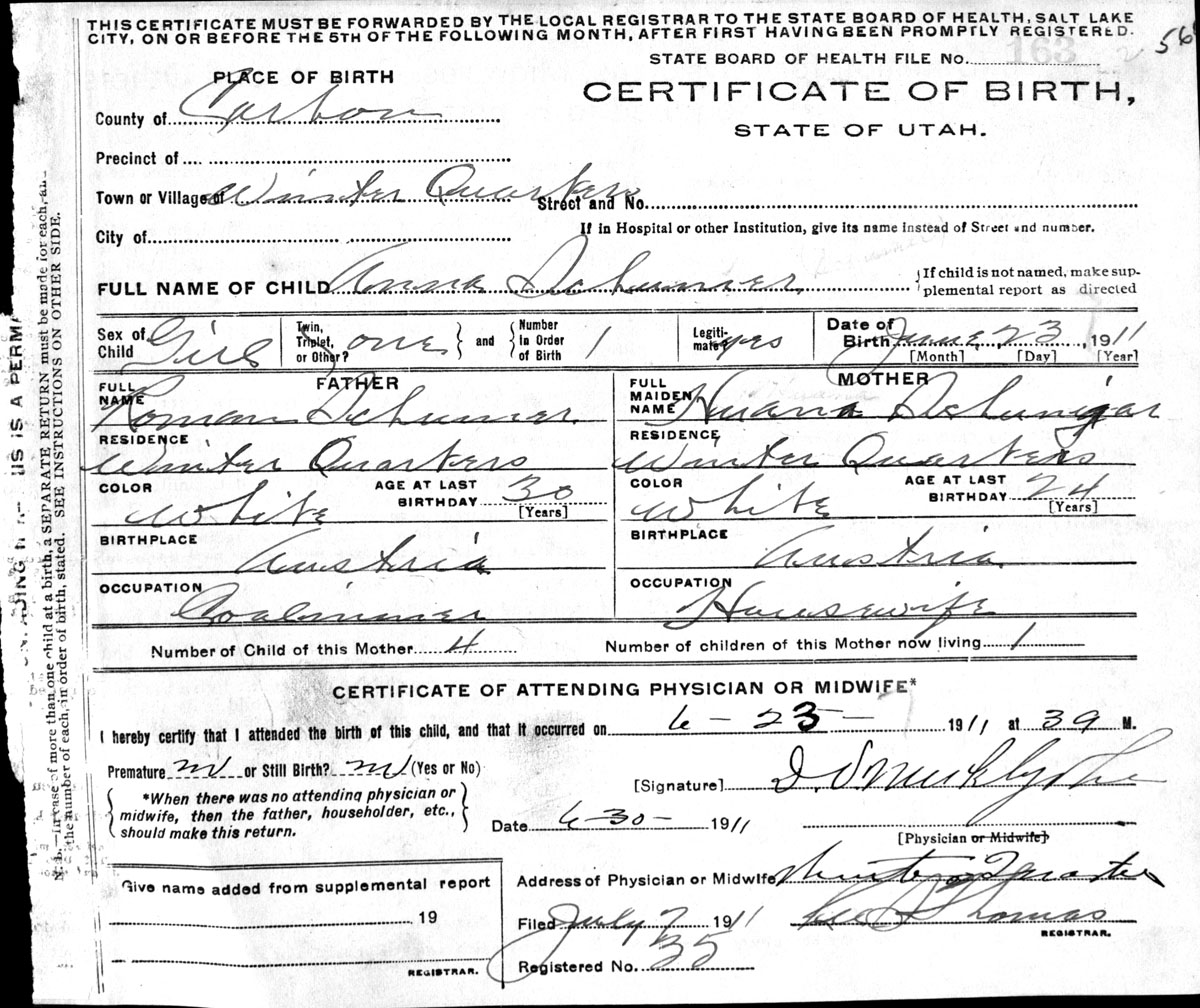 THIS CERTIFICATE MUST BE FORWARDED BY THE LOCAL REGISTRAR TO THE STATE BOARD OF HEALTH, SALT LAKE
CITY, ON OR BEFORE THE 5TH OF THE FOLLOWING MONTH, AFTER FIRST HAVING BEEN PROMPTLY REGISTERED.
56
STATE BOARD OF HEALTH FILE No. 163
PLACE OF BIRTH
CERTIFICATE OF BIRTH,
STATE OF UTAH.
County of Carbon
Precinct of
Town or Village of Winter Quarters Street and No.
City of
If in Hospital or other Institution, give its name instead of Street and number.
FULL NAME OF CHILD Anna Schumer
{If child is not named, make sup-
plemental report as directed
Sex of Child Girl Twin, Triplet, or Other? one } and { Number In Order of Birth 1 Legiti-mate? yes Date of Birth June 23, 1911
[Month] [Day] [Year]
FATHER
FULL NAME Roman Schumer
RESIDENCE
Winter Quarters
COLOR White AGE AT LAST BIRTHDAY 30 [Years]
BIRTHPLACE
Austria
OCCUPATION
Coalminer
MOTHER
FULL MAIDEN NAME
RESIDENCE
Winter Quarters
COLOR White AGE AT LAST BIRTHDAY 24 [Years]
BIRTHPLACE
Austria
OCCUPATION
Housewife
Number of Child of this Mother 4 Number of children of this Mother now living 1
CERTIFICATE OF ATTENDING PHYSICIAN OR MIDWIFE*
I hereby certify that I attended the birth of this child, and that it occurred on 6-23- 1911 at M.
Premature or Still Birth? (Yes or No)
[Signature]
{ *When there was no attending physician or
midwife, then the father, householder, etc.,
should make this return. }
Date 6-30- 1911
[Physician or Midwife]
Give name added from supplemental report
19
REGISTRAR.
Address of Physician or Midwife Winter Quarters
Filed July 7 1911 Thomas
REGISTRAR.
Registered No. 35
US IS A PERMA
N. B.—In case of more than one child at a birth, a SEPARATE RETURN must be made for each, and
the number of each, in order of birth, stated. SEE INSTRUCTIONS ON OTHER SIDE.